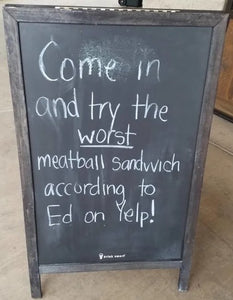 Come in
and try the
worst
meatball sandwich
according to
Ed on Yelp!
drink smart